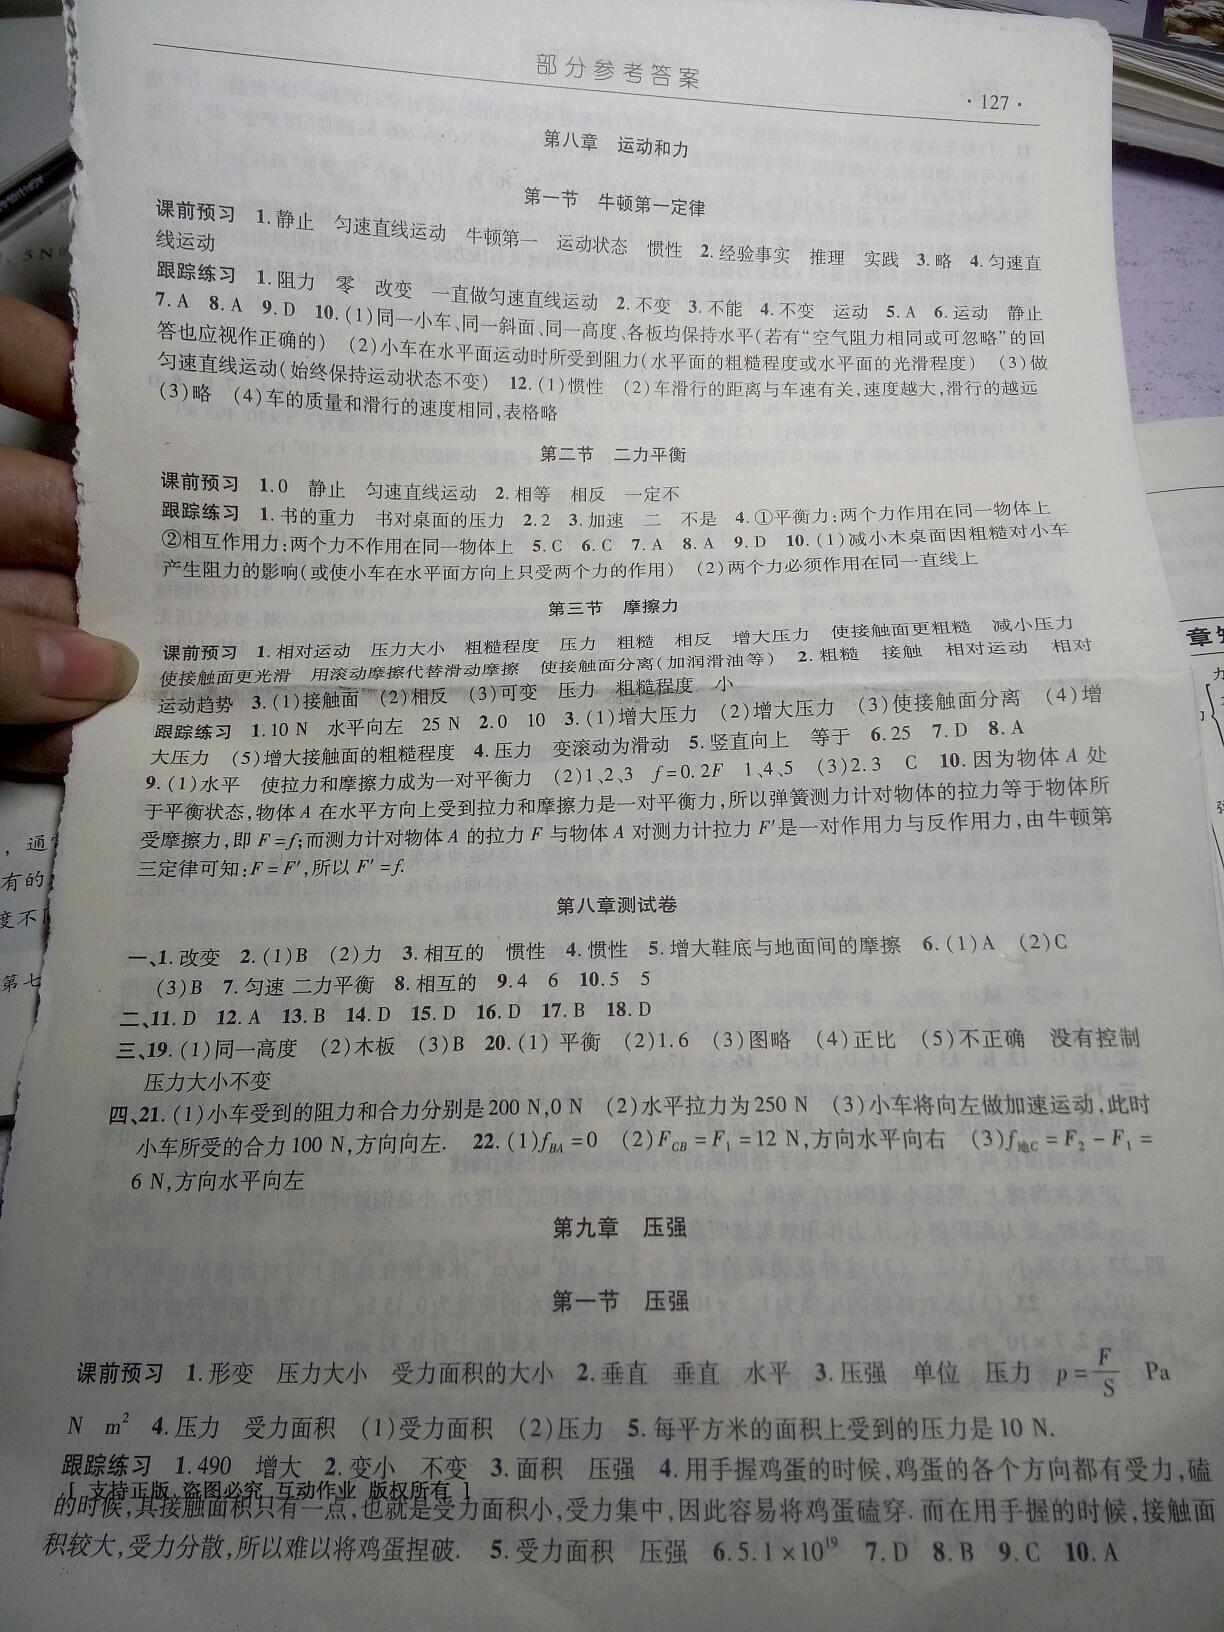 部分参考答案
·127·
第八章 运动和力
第一节 牛顿第一定律
课前预习 1.静止 匀速直线运动 牛顿第一 运动状态 惯性 2.经验事实 推理 实践 3.略 4.匀速直
线运动
跟踪练习 1.阻力 零 改变 一直做匀速直线运动 2.不变 3.不能 4.不变 运动 5.A 6.运动 静止
7.A 8.A 9.D 10.(1)同一小车、同一斜面、同一高度、各板均保持水平(若有“空气阻力相同或可忽略”的回
答也应视作正确的) (2)小车在水平面运动时所受到阻力(水平面的粗糙程度或水平面的光滑程度) (3)做
匀速直线运动(始终保持运动状态不变) 12.(1)惯性 (2)车滑行的距离与车速有关,速度越大,滑行的越远
(3)略 (4)车的质量和滑行的速度相同,表格略
第二节 二力平衡
课前预习 1.0 静止 匀速直线运动 2.相等 相反 一定不
跟踪练习 1.书的重力 书对桌面的压力 2.2 3.加速 二 不是 4.①平衡力:两个力作用在同一物体上
②相互作用力:两个力不作用在同一物体上 5.C 6.C 7.A 8.A 9.D 10.(1)减小木桌面因粗糙对小车
产生阻力的影响(或使小车在水平面方向上只受两个力的作用) (2)两个力必须作用在同一直线上
第三节 摩擦力
课前预习 1.相对运动 压力大小 粗糙程度 压力 粗糙 相反 增大压力 使接触面更粗糙 减小压力
使接触面更光滑 用滚动摩擦代替滑动摩擦 使接触面分离(加润滑油等) 2.粗糙 接触 相对运动 相对
运动趋势 3.(1)接触面 (2)相反 (3)可变 压力 粗糙程度 小
跟踪练习 1.10 N 水平向左 25 N 2.0 10 3.(1)增大压力 (2)增大压力 (3)使接触面分离 (4)增
大压力 (5)增大接触面的粗糙程度 4.压力 变滚动为滑动 5.竖直向上 等于 6.25 7.D 8.A
9.(1)水平 使拉力和摩擦力成为一对平衡力 (2)1、2、3 f=0.2F 1、4、5 (3)2.3 C 10.因为物体 A 处
于平衡状态,物体 A 在水平方向上受到拉力和摩擦力是一对平衡力,所以弹簧测力计对物体的拉力等于物体所
受摩擦力,即 F=f;而测力计对物体 A 的拉力 F 与物体 A 对测力计拉力 F′是一对作用力与反作用力,由牛顿第
三定律可知:F=F′,所以 F′=f.
第八章测试卷
一、1.改变 2.(1)B (2)力 3.相互的 惯性 4.惯性 5.增大鞋底与地面间的摩擦 6.(1)A (2)C
(3)B 7.匀速 二力平衡 8.相互的 9.4 6 10.5 5
二、11.D 12.A 13.B 14.D 15.D 16.D 17.B 18.D
三、19.(1)同一高度 (2)木板 (3)B 20.(1) 平衡 (2)1.6 (3)图略 (4)正比 (5)不正确 没有控制
压力大小不变
四、21.(1)小车受到的阻力和合力分别是200 N,0 N (2)水平拉力为250 N (3)小车将向左做加速运动,此时
小车所受的合力100 N,方向向左. 22.(1)f_BA=0 (2)F_CB=F₁=12 N,方向水平向右 (3)f_地C=F₂-F₁=
6 N,方向水平向左
第九章 压强
第一节 压强
课前预习 1.形变 压力大小 受力面积的大小 2.垂直 垂直 水平 3.压强 单位 压力 p=F/S Pa
N m² 4.压力 受力面积 (1)受力面积 (2)压力 5.每平方米的面积上受到的压力是10 N.
跟踪练习 1.490 增大 2.变小 不变 3.面积 压强 4.用手握鸡蛋的时候,鸡蛋的各个方向都有受力,磕
[ 支持正版 盗图必究 互动作业 版权所有 ]
的时候,其接触面积只有一点,也就是受力面积小,受力集中,因此容易将鸡蛋磕穿.而在用手握的时候,接触面
积较大,受力分散,所以难以将鸡蛋捏破. 5.受力面积 压强 6.5.1×10¹⁹ 7.D 8.B 9.C 10.A